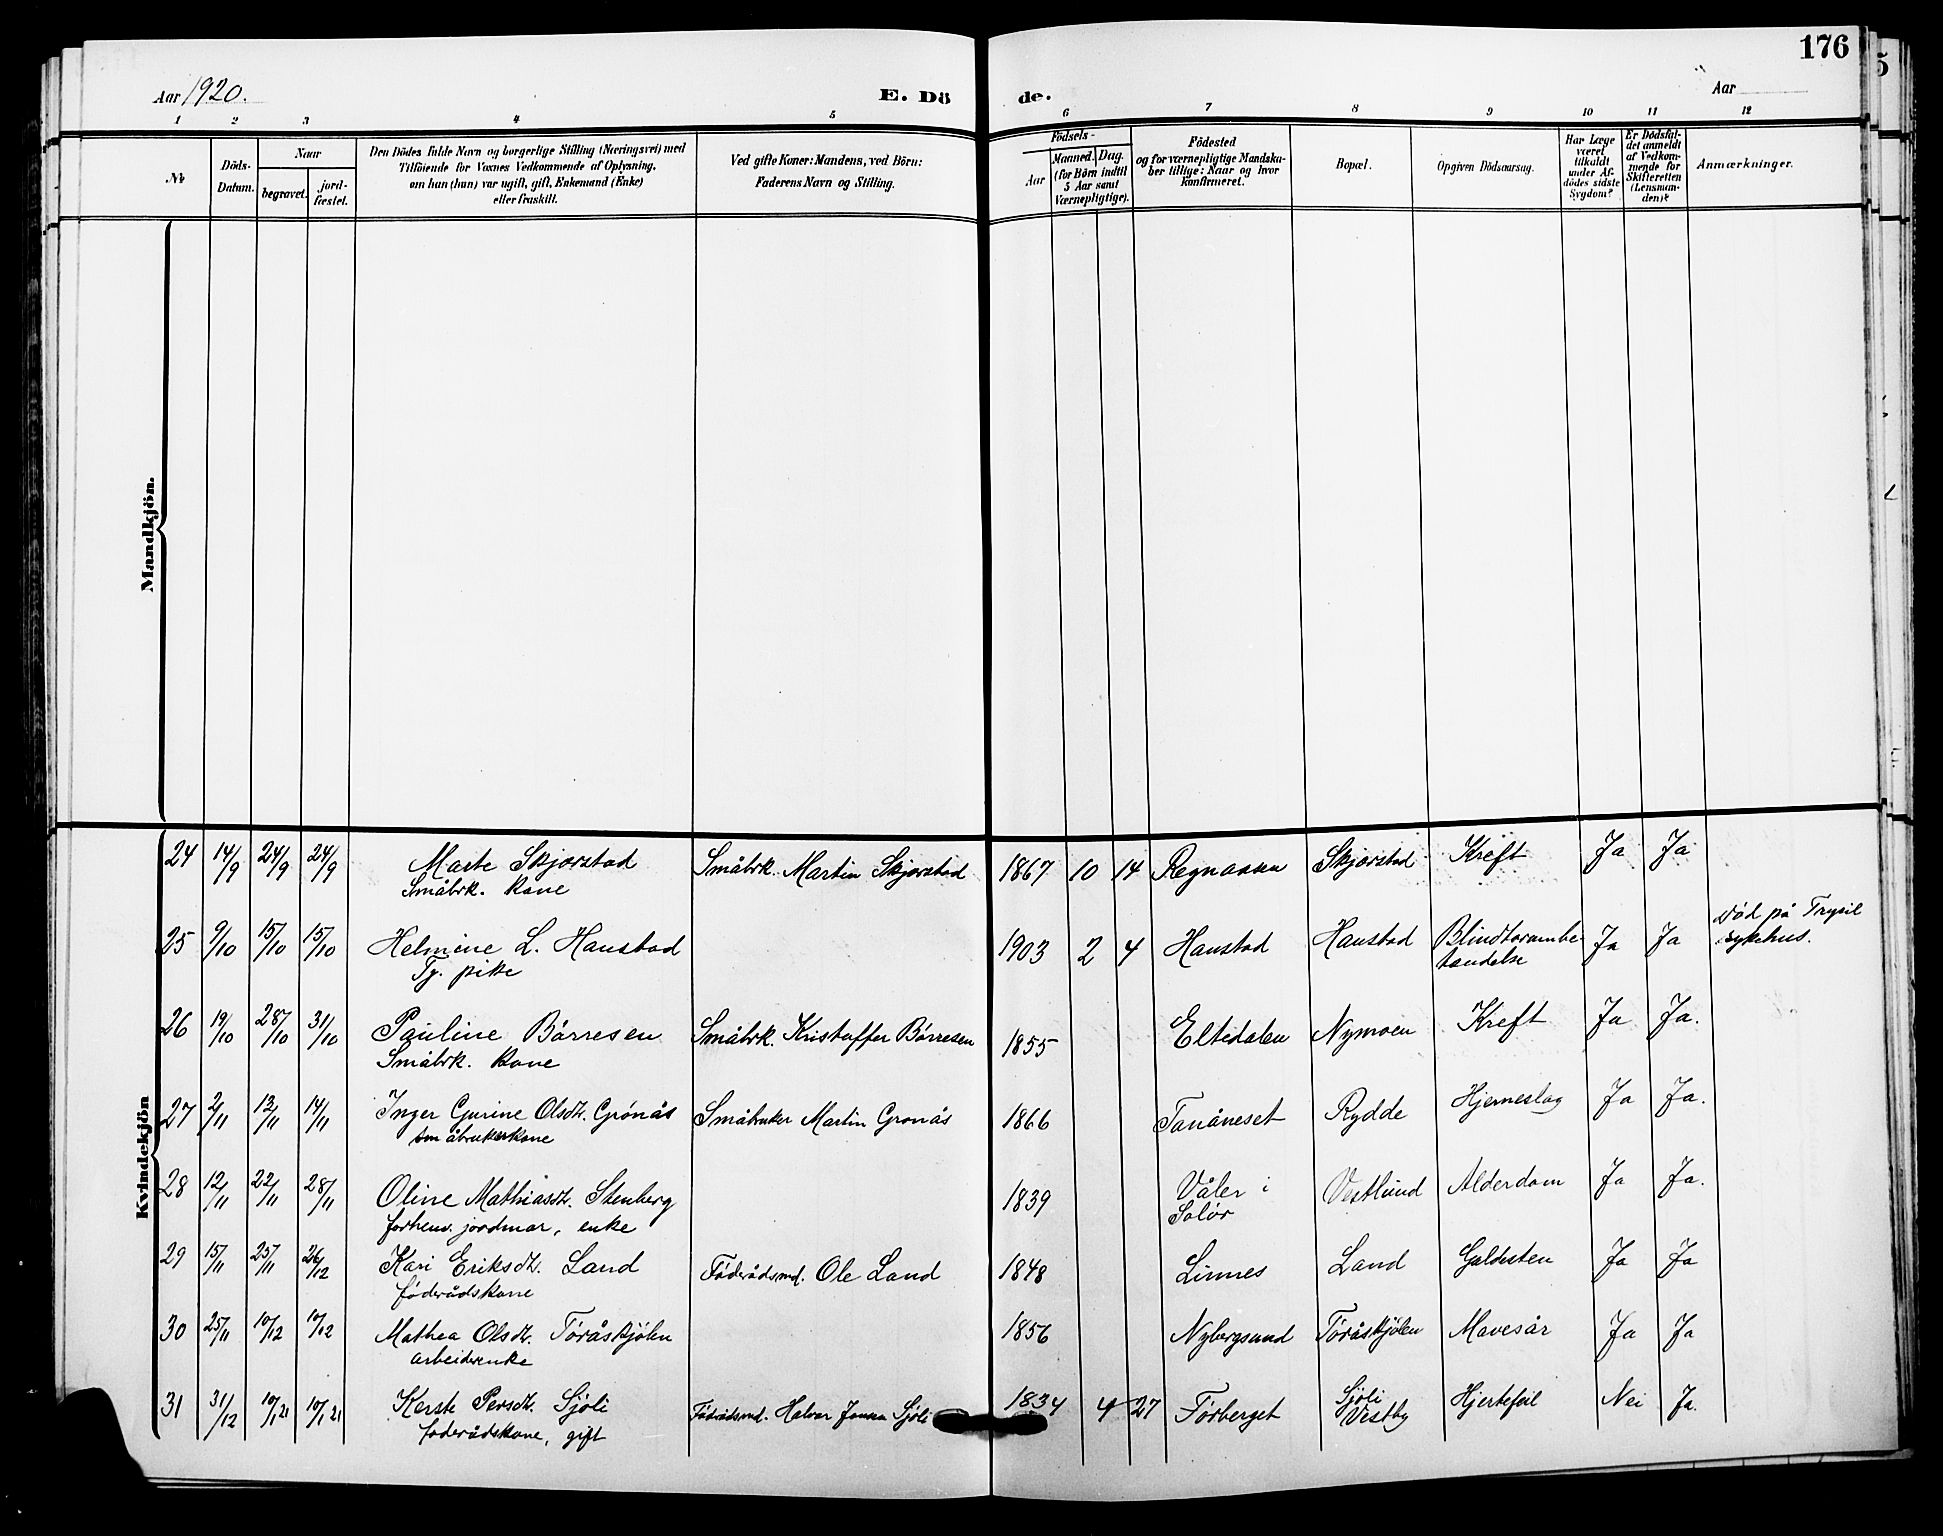 176
Aar 1920.
E. Dö
de.
Aar
1 2 3 4 5 6 7 8 9 10 11 12
№
Döds-
Datum.
Naar
begravet.
jord-
fæstet.
Den Dödes fulde Navn og borgerlige Stilling (Næringsvei) med
Tilföiende for Voxnes Vedkommende af Oplysning,
om han (hun) var ugift, gift, Enkemand (Enke)
eller fraskilt.
Ved gifte Koner: Mandens, ved Börn:
Faderens Navn og Stilling.
Födsels-
Aar
Maaned. Dag.
(for Börn indtil
5 Aar samt
Værnepligtige).
Födested
og for værnepligtige Mandska-
ber tillige: Naar og hvor
konfirmeret.
Bopæl.
Opgiven Dödsaarsag.
Har Læge
været
tilkaldt
under Af-
dödes sidste
Sygdom?
Er Dödsfal-
det anmeldt
af Vedkom-
mende for
Skifteretten
(Lensman-
den)?
Anmærkninger.
Mandkjön.
Kvindekjön
24 14/9 24/9 24/9 Marte Skjørstad Småbrk. Martin Skjørstad 1867 10 14 Regnåsen Skjørstad Kreft Ja Ja
Småbrk. kone
25 9/10 15/10 15/10 Helmine L. Hanstad 1903 2 4 Hanstad Hanstad Blindtarmbe- Ja Ja død på Trysil
Tj. pike tændelse sykehus.
26 19/10 28/10 31/10 Pauline Børresen Småbrk. Kristoffer Børresen 1855 Eltedalen Nymoen Kreft Ja Ja.
Småbrk. kone
27 2/11 13/11 14/11 Inger Gurine Olsdt. Grønås Småbruker Martin Grønås 1866 Tanåneset Rydde Hjerneslag Ja Ja.
småbrukerkone
28 12/11 22/11 28/11 Oline Mathiasdt. Stenberg 1839 Våler i Vestlund Alderdom Ja Ja.
forhenv. jordmor, enke Solør
29 15/11 25/11 26/12 Kari Eriksdt. Land Føderådsmd. Ole Land 1848 Linnes Land Galdesten Ja Ja
føderådskone
30 25/11 10/12 10/12 Mathea Olsdt. Töråskjölen 1856 Nybergsund Töråskjölen Mavesår Ja Ja
arbeiderenke
31 31/12 10/1 21 10/1 21 Kerste Persdt. Sjöli Föderådsmd. Halvor Jonsen Sjöli 1834 4 27 Förberget Sjöli Hjertefeil Nei Ja.
føderådskone, gift Vestby